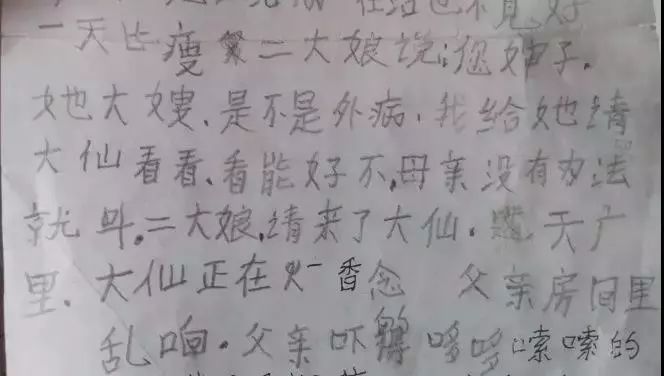 在治也不见好
一天比瘦 二大娘说:您婶子.
她大嫂.是不是外病.我给她请
大仙看看.看能好不,母亲没有办法
就叫.二大娘,请来了大仙. 天广
里.大仙正在 一香念 父亲房间里
乱响.父亲吓 哆哆嗦嗦的